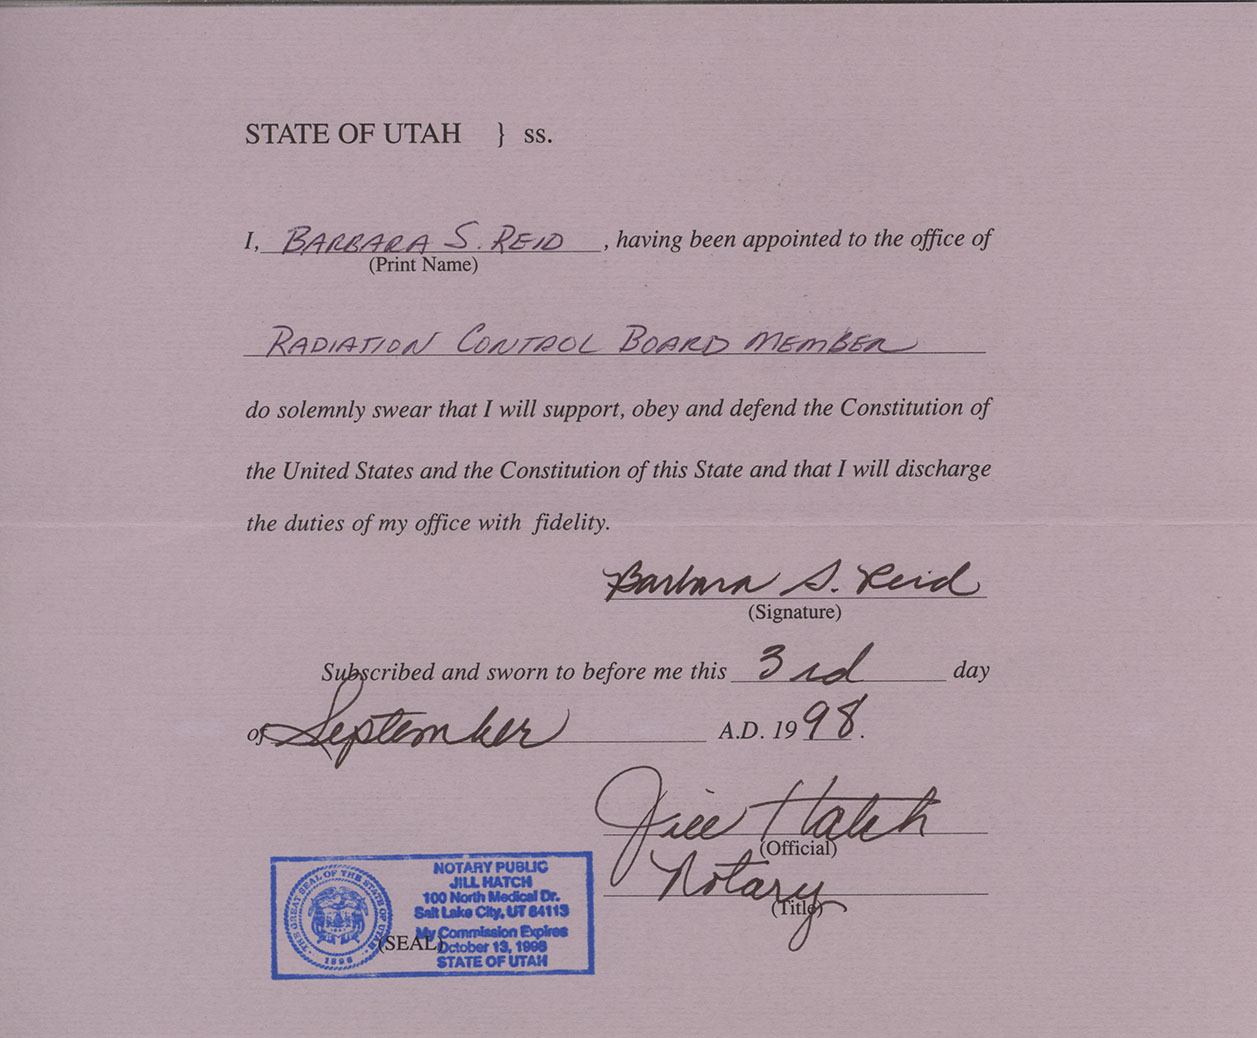 STATE OF UTAH } ss.
I, BARBARA S. REID, having been appointed to the office of
(Print Name)
RADIATION CONTROL BOARD MEMBER
do solemnly swear that I will support, obey and defend the Constitution of
the United States and the Constitution of this State and that I will discharge
the duties of my office with fidelity.
Barbara S. Reid
(Signature)
Subscribed and sworn to before me this 3rd day
of September A.D. 1998.
Jill Hatch
(Official)
Notary
(Title)
THE GREAT SEAL OF THE STATE OF UTAH
1896
(SEAL)
NOTARY PUBLIC
JILL HATCH
100 North Medical Dr.
Salt Lake City, UT 84113
My Commission Expires
October 13, 1998
STATE OF UTAH